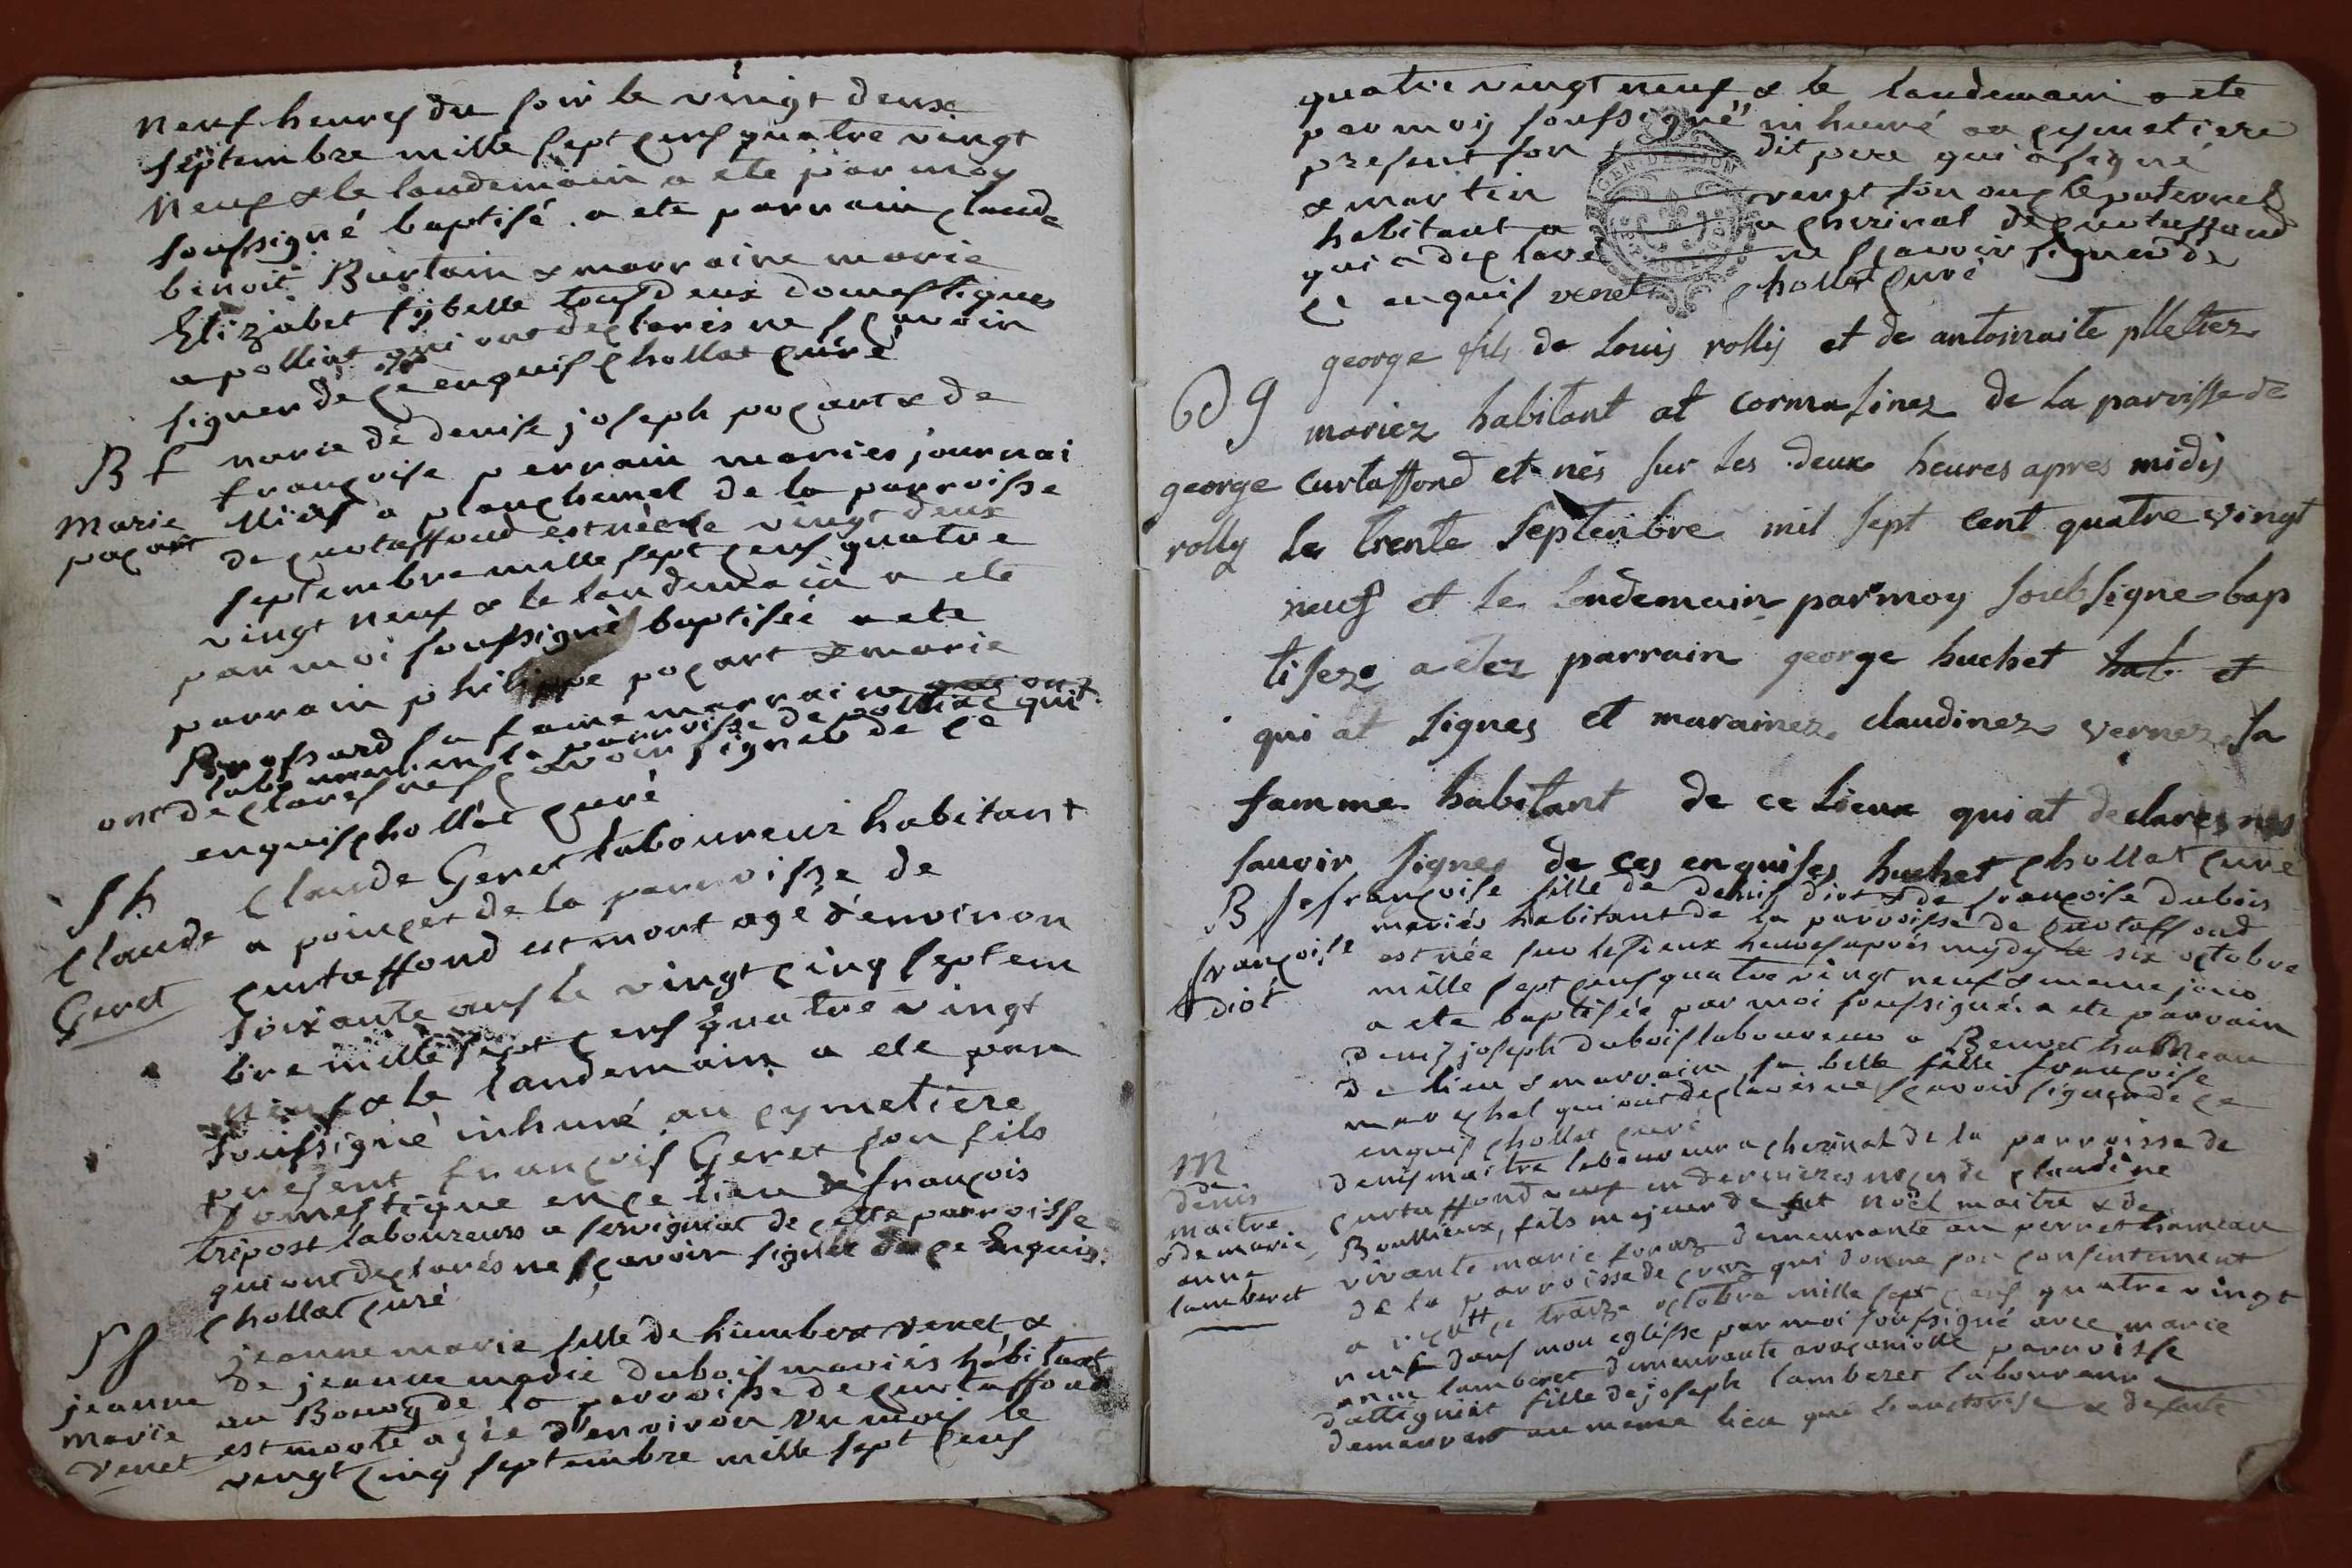 neuf heures du soir le vingt deux
septembre mille sept cens quatre vingt
neuf & le landemain a ete par moy
soussigné baptisé. a ete parrain claude
benoit Burtain & marraine marie
Elizabet sybelle tous deux domestiques
a polliat qui ont declarés ne sçavoir
signer de ce enquis chollat curé
B f
marie
paçart
marie de denise joseph poçart & de
françoise perrain mariés journai
lliers a planchemel de la parroisse
de curtaffond est née le vingt deux
septembre mille sept cens quatre
vingt neuf & le landemain a ete
par moi soussigné baptisée a ete
parrain philippe poçart & marie
Brossard sa fame marraine qui ont
laboureur en la parroisse de polliat qui
ont declares ne sçavoir signer de ce
enquis chollat curé
S h
Claude
Geret
Claude Geret laboureur habitant
a poinçet de la parroisse de
curtaffond est mort agé d'environ
soixante ans le vingt cinq septem
bre mille sept cens quatre vingt
neuf & le landemain a ete par
soussigné inhumé au cymetiere
present françois Geret son fils
domestique en ce lieu & françois
tripost laboureurs a servignat de cette parroisse
qui ont declarés ne sçavoir signer de ce Enquis.
chollat curé
S f
jeanne
marie
venet
jeanne marie fille de humbert venet &
de jeanne marie dubois mariés habitant
au Bourg de la parroisse de curtaffond
est morte agée d'environ un mois le
vingt cinq septembre mille sept cens
quatre vingt neuf & le landemain a ete
par moy soussigné inhumé au cymetiere
present son dit pere qui a signé
& martin venet son oncle paternel
habitant a a cherinal de curtaffond
qui a declaré ne sçavoir signer de
ce enquis venet chollat curé
B g
george
rolly
george fils de Louis rolly et de antoinaite plletier
mariez habitant at cormasinez de la paroisse de
curtaffond et nés sur les deux heures apres midy
le trente Septenbre mil sept cent quatre vingt
neuf et le lendemain par moy soubsigne bap
tiseze a etez parrain george huchet hab et
qui at signes et marainez claudinez vernez sa
famme habitant de ce lieux qui at declares nes
savoir signes de ces enquises huchet chollat curé
B f
françoise
diot
françoise fille de denis diot & de françoise dubois
mariés habitant de la parroisse de curtaffond
est née sur les deux heures aprés mydy le six octobre
mille sept cens quatre vingt neuf & meme jour
a ete baptisée par moi soussigné. a ete parrain
denis joseph dubois laboureur a Beuvet hameau
de lieu & marraine sa belle fille françoise
marechal qui ont declarés ne sçavoir signer de ce
enquis chollat curé
M
denis
maitre
& de marie
anne
lamberet
denis maitre laboureur a cherinal de la parroisse de
curtaffond veuf en dernieres noces de claudine
Boullieux, fils majeur de fut noël maitre & de
vivante marie foraz demeurante au perret hameau
de la parroisse de craz qui donne son consentement
a reçu ce traize octobre mille sept cens quatre vingt
neuf dans mon eglisse par moi soussigné avec marie
anne lamberet demeurante parroisse
d'attigniat fille de joseph lamberet laboureur
demeurant au meme lieu que & defunte